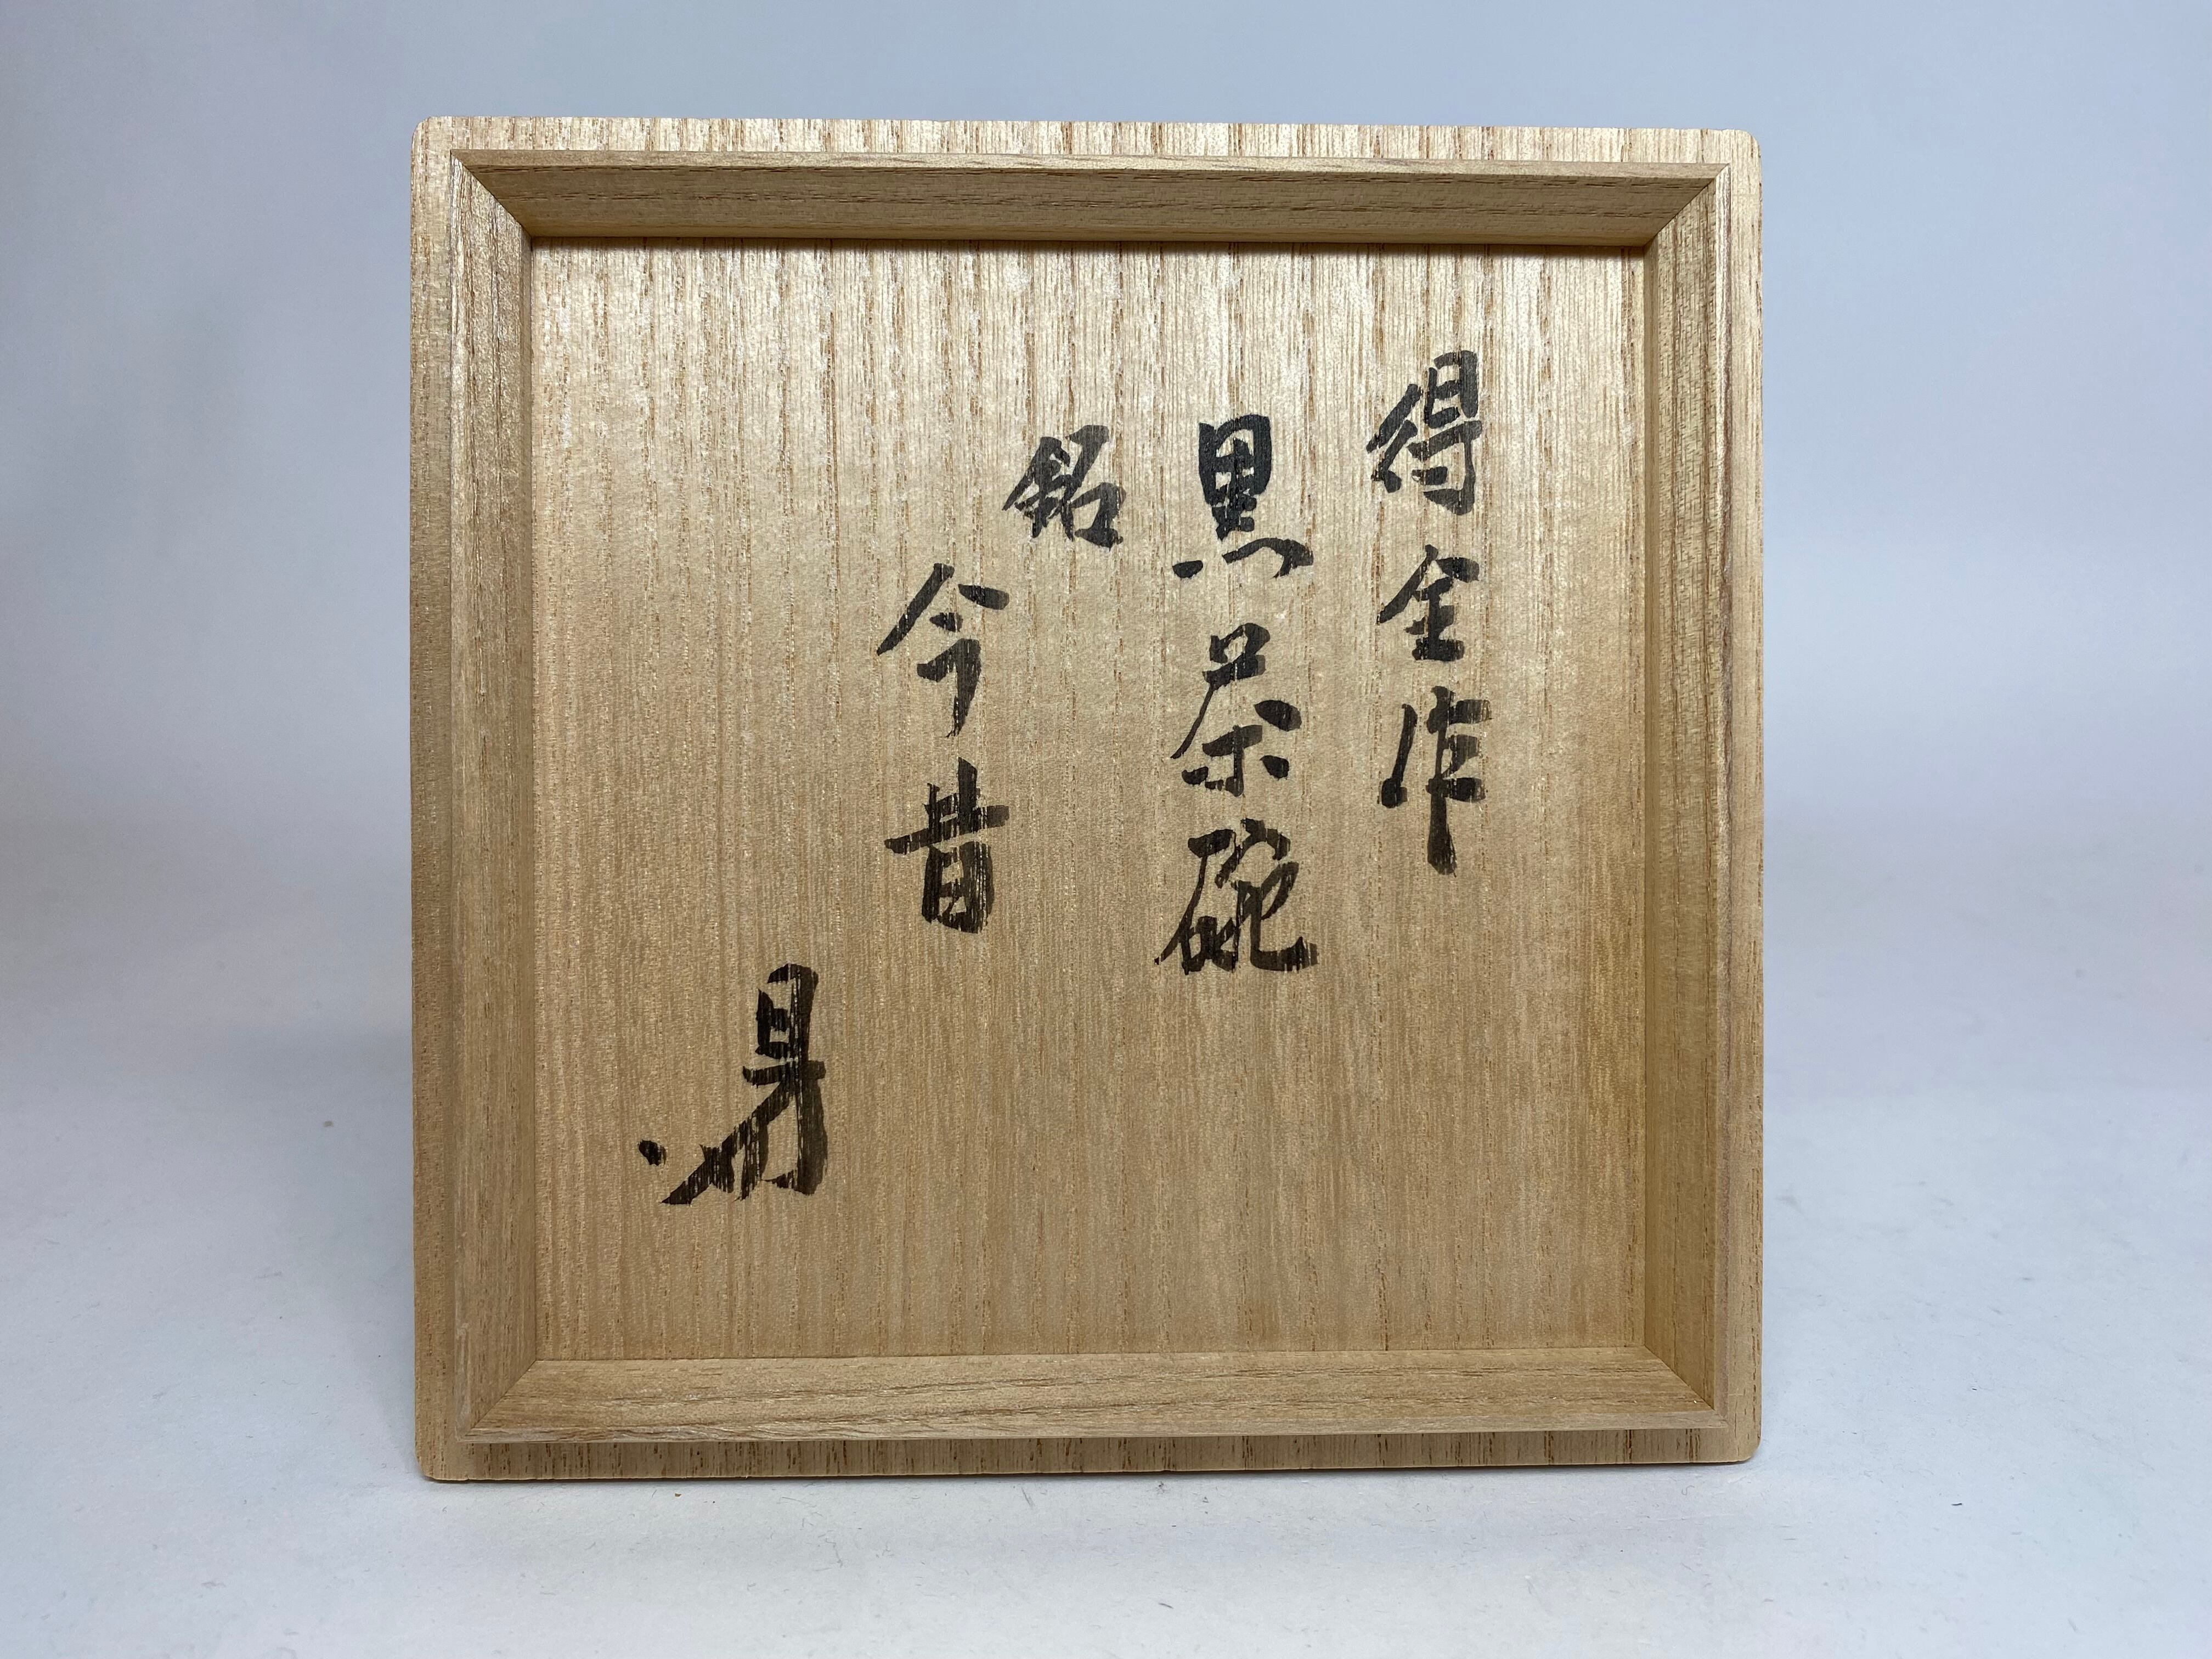 得全作
黒茶碗
銘
今昔